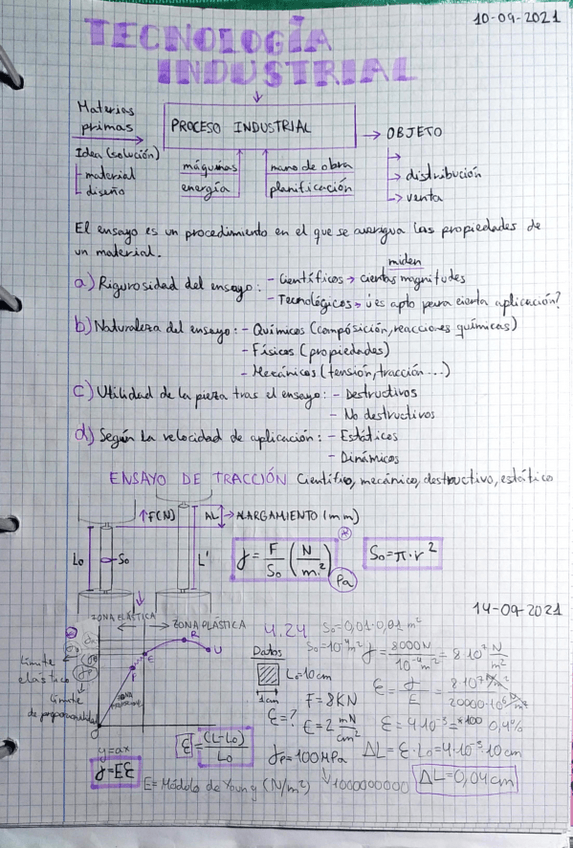 10-09-2021
TECNOLOGÍA
INDUSTRIAL
Materias
primas
PROCESO INDUSTRIAL
→ OBJETO
Idea (solución)
material
diseño
máquinas
energía
mano de obra
planificación
→ distribución
→ venta
El ensayo es un procedimiento en el que se averigua las propiedades de
un material.
miden
a) Rigurosidad del ensayo: - Científicos → ciertas magnitudes
- Tecnológicos → ¿es apto para cierta aplicación?
b) Naturaleza del ensayo: - Químicos (composición, reacciones químicas)
- Físicos (propiedades)
- Mecánicos (tensión, tracción...)
c) Utilidad de la pieza tras el ensayo: - Destructivos
- No destructivos
d) Según la velocidad de aplicación: - Estáticos
- Dinámicos
ENSAYO DE TRACCIÓN Científico, mecánico, destructivo, estático
↑F(N) ΔL → ALARGAMIENTO (mm)
L0 S0 L'
σ = F/S0 (N/m²)
Pa
S0 = π·r²
14-09-2021
ZONA ELÁSTICA
ZONA PLÁSTICA
Límite
elástico
Límite
de proporcionalidad
P E R U
y=ax
σ=Eε
ε = (L-L0)/L0
E = Módulo de Young (N/m²)
4.24
S0 = 0,01·0,01 m²
S0 = 10⁻⁴ m²
σ = 8000N/10⁻⁴ m² = 8·10⁷ N/m²
Datos
L0 = 10cm
1cm
F = 8KN
ε = ?
σp = 100MPa
1000000000
ΔL = ε·L0 = 4·10⁻³·10cm
ΔL = 0,04cm